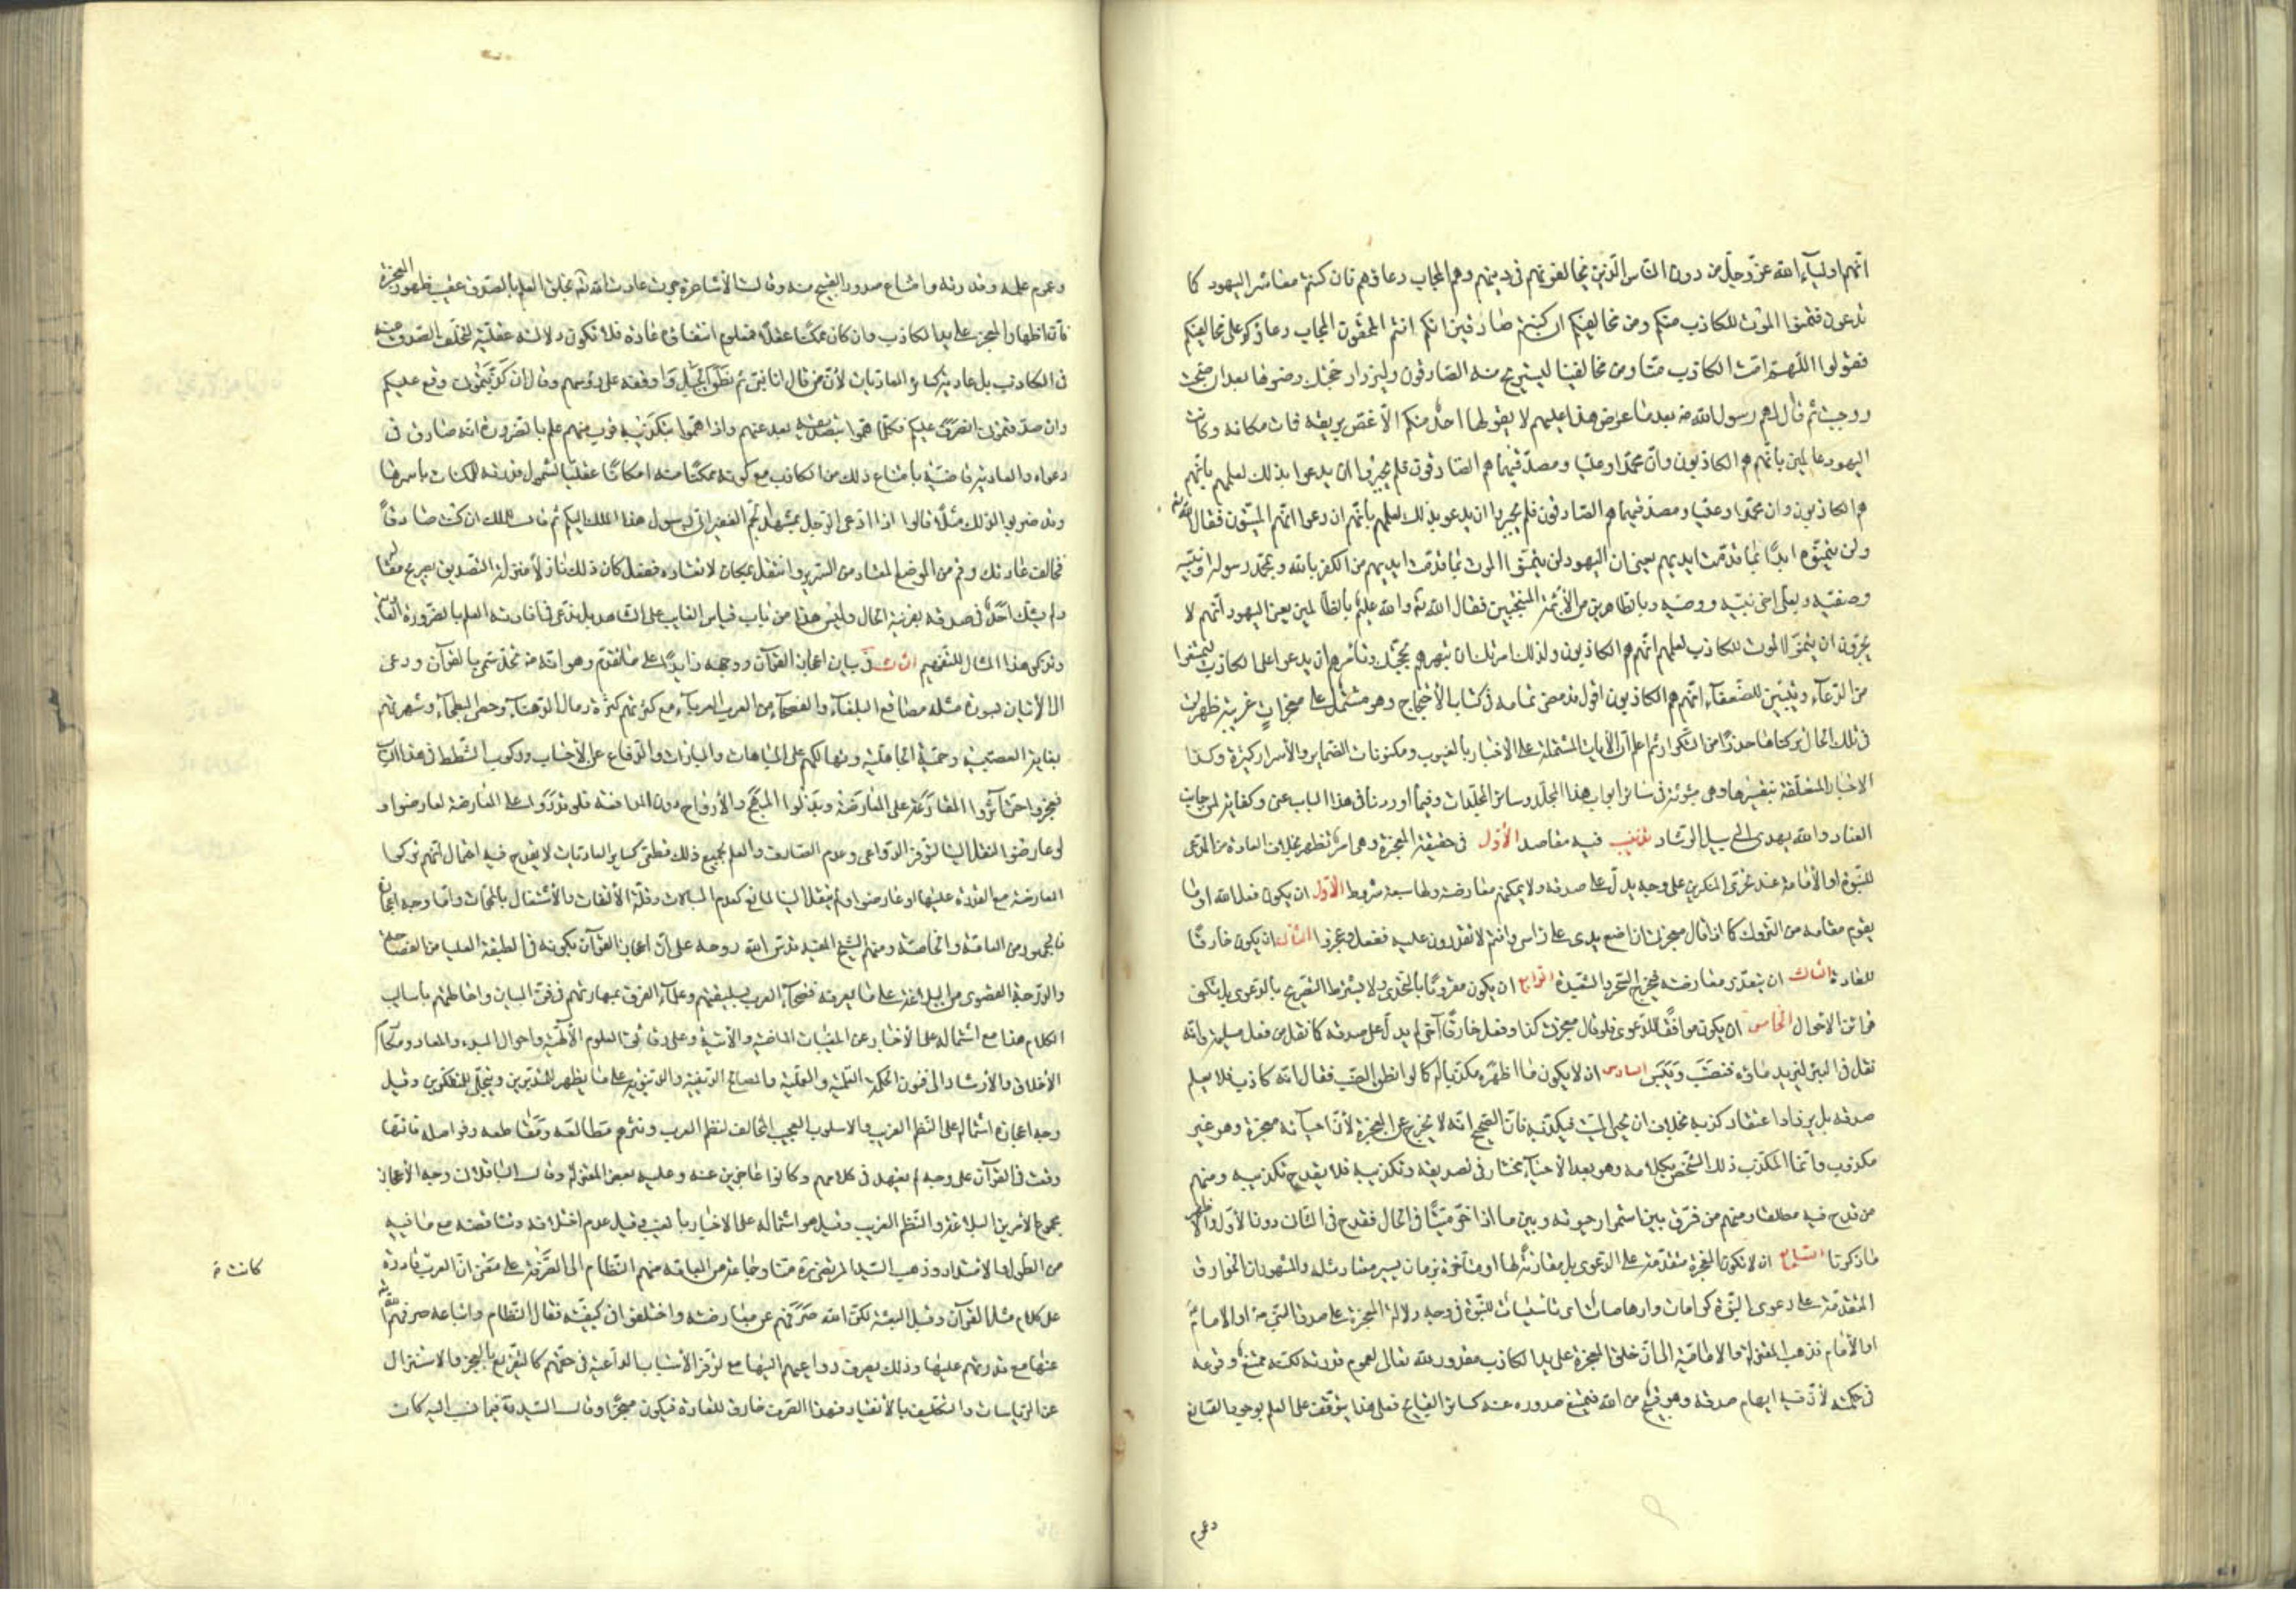 انّهم اولياء الله عزّ وجلّ من دون الناس الّذين يخالفونهم في دينهم وهم المجاب دعاؤهم فان كنتم معاشر اليهود كما
تدعون فتمنوا الموت للكاذب منكم ومن مخالفيكم ان كنتم صادقين انكم انتم المحقون المجاب دعاؤكم على مخالفيكم
فقولوا اللّهم امت الكاذب منّا ومن مخالفينا ليستريح منه الصادقون وليزداد حجتك وضوحا بعد ان صحت
ووجبت ثم قال لهم رسول الله ص بعد ما عرض هذا عليهم لا يقولها احد منكم الّا غصّ بريقه فمات مكانه وكانت
اليهود عالمين بانّهم هم الكاذبون وانّ محمّدا وعليّا ومصدّقيهما هم الصادقون فلم يجسروا ان يدعوا بذلك لعلمهم بانّهم
هم الكاذبون وان محمّدا وعليا ومصدقيهما هم الصادقون فلم يجسروا ان يدعو بذلك لعلمهم بانّهم ان دعوا انّهم الميّتون فقال الله تعالى
ولن يتمنّوه ابدًا بما قدّمت ايديهم يعني ان اليهود لن يتمنّوا الموت بما قدّمت ايديهم من الكفر بالله وبمحمّد رسوله ونبيّه
وصفيّه وبعليّ اخي نبيّه ووصيّه وبالطاهرين من الأئمّة المنتجبين فقال الله تع والله عليم بالظالمين يعني اليهود انّهم لا
يجرؤن ان يتمنوا الموت للكاذب لعلمهم انّهم هم الكاذبون ولذلك امرتك ان تبهرهم بحجّتك وتامرهم ان يدعوا على الكاذب ليمتنعوا
من الدّعاء ويتبيّن للضّعفاء انّهم هم الكاذبون اقول قد مضى تمامه في كتاب الأحتجاج وهو مشتمل على معجزات غريبة ظهرت
في تلك الحال تركناها حذرًا من التكرار ثم اعلم انّ الأيات المشتملة على الاخبار بالغيوب ومكنونات الضماير والأسرار كثيرة وكذا
الاخبار المتعلّقة بتفسيرها وهي مبثوثة في سائر ابواب هذا المجلّد وسائر المجلّدات وفيما اوردنا في هذا الباب غنى وكفاية لمن جانب
العناد والله يهدي الى سبيل الرّشاد تذنيب فيه مقاصد الأوّل في حقيقة المعجزة وهي امر تظهر بخلاف العادة من المدّعي
للنبّوة او الأمامة عند تحدّي المنكرين على وجه يدلّ على صدقه ولا يمكنهم معارضته ولها سبعة شروط الأوّل ان يكون فعل الله او ما
يقوم مقامه من التروك كما اذا قال معجزتي ان اضع يدي على راسي وانتم لا تقدرون عليه ففعل وعجزوا الثاني ان يكون خارقًا
للعادة الثالث ان يتعذّر معارضته فيخرج السّحر والشعبذة الرابع ان يكون مقرونًا بالتحدّي ولا يشترط التصريح بالدّعوى بل تكفي
قرائن الاحوال الخامس ان يكون موافقًا للدّعوى فلو قال معجزتي كذا وفعل خارقًا آخر لم يدل على صدقه كما نقل من فعل مسيلمة وانه
تفل في البئر ليزيد مائه فنضب ويبس السادس ان لا يكون ما اظهره مكذّبا له كما لو انطق الضبّ فقال انه كاذب فلا يعلم
صدقه بل يزداد اعتقاد كذبه بخلاف ان يحيي الميت فيكذّبه فانّ الصّحيح انّه لا يخرج عن المعجزة لأنّ احياءه معجزة وهو غير
مكذوب وانّما المكذّب ذلك الشّخص بكلامه وهو بعد الأحياء مختار في تصديقه وتكذيبه فلا يقدح تكذيبه ومنهم
من قدح فيه مطلقا ومنهم من فرّق بين استمرار حيوته وبين ما اذا خرّ ميّتًا في الحال فقدح في الثاني دون الأوّل والاظهر
ما ذكرنا السّابع ان لا تكون المعجزة متقدّمة على الدّعوى بل مقارنة لها او متأخرة بزمان يسير معتاد مثله والمشهور ان الخوارق
المتقدّمة على دعوى النبّوة كرامات وارهاصات اي تاسيسات للنبّوة في وجه دلالة المعجزة على صدق النبي ص او الامام
او الأمام فذهب المعتزلة والاماميّة الى انّ خلق المعجزة على يد الكاذب مقدور لله تعالى لعموم قدرته لكنّه ممتنع وقوعه
في حكمته لأنّ فيه ايهام صدقه وهو قبيح من الله فيمتنع صدوره عنه كسائر القبايح فعلى هذا يتوقّف على العلم بوجود الصّانع
وعموم
وعموم علمه وقدرته وامتناع صدور القبيح منه وقالت الأشاعرة جرت عادة الله تع بخلق العلم بالصّدق عقيب ظهور المعجزة
فان اظهار المعجز على يد الكاذب وان كان ممكنًا عقلًا فمعلوم انتفائه عادة فلا تكون دلالته عقليّة لتخلّف الصّدق عنه
في الكاذب بل عادية كسائر العاديات لأنّ من قال انا نبيّ ثم نطق الجبل واوقفه على رؤسهم وقال ان كذّبتموني وقع عليكم
وان صدقتموني انصرف عليكم فكلّما همّوا بتصديقه بعد عنهم واذا همّوا بتكذيبه قرب منهم علم بالضرورة انه صادق في
دعواه والعادية قاضية بامتناع ذلك من الكاذب مع كونه ممكنًا منه امكانًا عقليّا لشمول قدرته للممكنات باسرها
وقد ضربوا لذلك مثلًا قالوا اذا ادّعى الرّجل بمشهد الجمّ الغفير انّي رسول هذا الملك اليكم ثم قال للملك ان كنت صادقًا
فخالف عادتك وقم من الموضع المعتاد من السّرير وانتقل بمكان لا تعتاده ففعل كان ذلك نازلًا منزلة التّصديق بصريح مقاله
ولم يشكّ احد في صدقه بقرينة الحال وليس هذا من باب قياس الغايب على الشاهد بل ندّعي في افادته العلم بالضّرورة العادية
وتذكر هذا المثال للتفهيم الثاني في بيان اعجاز القرآن ووجهه زايدًا على ما تقدّم وهو انّه ص تحدّى بالقرآن ودعى
الى الأتيان بسورة مثله مصاقع البلغاء والفصحاء من العرب العرباء مع كثرتهم كثرة رمال الدّهناء وحصى البطحاء وشهرتهم
بغاية العصبيّة وحميّة الجاهليّة وتهالكهم على المباهات والمبارات والدّفاع عن الأحساب وركوب الشّطط في هذا الباب
فعجزوا حتى آثروا المقارعة على المعارضة وبذلوا المهج والأرواح دون المدافعة فلو قدروا على المعارضة لعارضوا و
لو عارضوا لنقل الينا لتوفّر الدّواعي وعدم الصّارف والعلم بجميع ذلك قطعي كساير العاديات لا يقدح فيه احتمال انّهم تركوا
المعارضة مع القدرة عليها او عارضوا ولم ينقل الينا لمانع كعدم المبالات وقلّة الألتفات والأشتغال بالمهمّات وامّا وجه اعجازه
فالجمهور من العامّة والخاصّة ومنهم الشيخ المفيد قدّس الله روحه على انّ اعجاز القرآن بكونه في الطبقة العليا من الفصاحة
والدّرجة القصوى من البلاغة على ما يعرفه فصحاء العرب بسليقتهم وعلماء الفرق بمهارتهم في فنّ البيان واحاطتهم باساليب
الكلام هذا مع اشتماله على الأخبار عن المغيّبات الماضية والآتية وعلى دقائق العلوم الألهيّة واحوال المبدء والمعاد ومكارم
الأخلاق والأرشاد الى فنون الحكمة العلميّة والعمليّة والمصالح الدّينيّة والدّنيويّة على ما يظهر للمتدبّرين ويتجلّى للمتفكّرين وقيل
وجه اعجازه اشتماله على النّظم الغريب والاسلوب العجيب المخالف لنظم العرب ونثرهم في مطالعه ومقاطعه وفواصله فانّها
وقعت في القرآن على وجه لم يعهد في كلامهم وكانوا عاجزين عنه وعليه بعض المعتزلة وقال الباقلاني وجه الأعجاز
مجموع الأمرين البلاغة والنّظم الغريب وقيل هو اشتماله على الاخبار بالغيب وقيل عدم اختلافه وتناقضه مع ما فيه
من الطول والامتداد وذهب السّيد المرتضى ره منّا وجماعة من العامّة منهم النّظام الى الصّرفة على معنى انّ العرب قادرة
كانت
على كلام مثل القرآن وقبل البعثة لكنّ الله صرفهم عن معارضته واختلفوا في كيفيّته فقال النّظام واتباعه صرفهم الله تع
عنها مع قدرتهم عليها وذلك بصرف دواعيهم اليها مع توفّر الأسباب الدّاعية في حقّهم كالتّقريع بالعجز والاستنزال
عن الرّياسات والتكليف بالأنقياد فهذا الصّرف خارق للعادة فيكون معجزًا وقال السّيد ره فيما نسب اليه كان